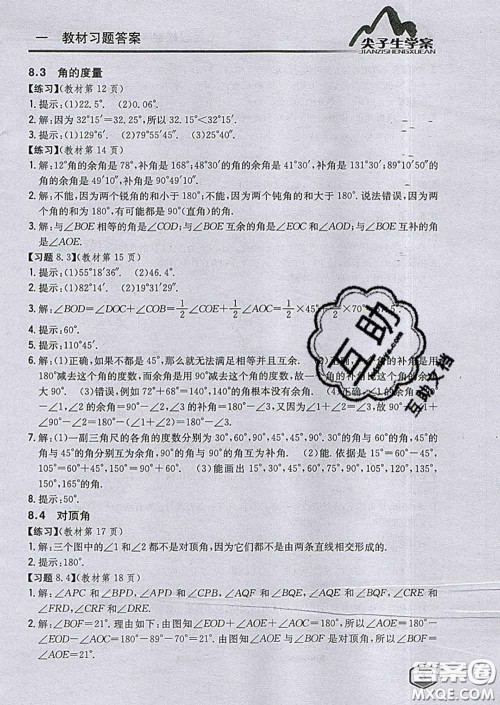 一 教材习题答案
尖子生学案
JIANZISHENGXUEAN
8.3 角的度量
【练习】(教材第12页)
1.提示:(1)22.5°. (2)0.06°.
2.解:因为32°15′=32.25°,所以32°15′>32.15°.
3.提示:(1)129°6′. (2)79°55′45″. (3)25°40″.
【练习】(教材第14页)
1.解:12°角的余角是78°,补角是168°;48°30′的角的余角是41°30′,补角是131°30′;89°10′50″的
角的余角是49′10″,补角是90°49′10″.
2.解:不能,因为两个锐角的和小于180°;不能,因为两个钝角的和大于180°.说法错误,因为两
个角的和为180°,有可能都是90°(直角)的角.
3.解:与∠BOE相等的角是∠COD;与∠BOE互余的角是∠EOC和∠AOD;与∠BOE互补的角
是∠AOE.
【习题8.3】(教材第15页)
1.提示:(1)55°18′36″. (2)46.4°.
2.提示:(1)82°14′. (2)19°51′30″.
3.解:∠BOD=∠DOC+∠COB=1/2∠COE+1/2∠AOC=1/2×45°
4.提示:60°.
5.提示:111.5°.
6.解:(1)正确,如果不都是45°,那么就无法满足相等并且互余.
180°减去这个角的度数,而余角是90°减去这个角的度数,故
大90°. (3)错误,例如72°+68°=140°,140°的角根本没有余角.
-∠1,∠2的余角=90°-∠2,因为∠1=∠2,所以90°-∠1=90°
=∠2的余角.
7.解:(1)一副三角尺的各角的度数分别为30°,60°,90°,45°,45°,90°.30°的角与60°的角、45°的
角与45°的角分别互为余角,90°的角与90°的角互为补角. (2)能画出105°,135°,150°的角.
105°=60°+45°,150°=90°+60°. (3)能画出15°,30°,45°,60°,75°,90°,105°,120°,135°,
150°,165°的角.
8.提示:50°.
8.4 对顶角
【练习】(教材第17页)
1.解:三个图中的∠1和∠2都不是对顶角,因为它们都不是由两条直线相交形成的.
2.提示:180°.
【习题8.4】(教材第18页)
1.解:∠APC和∠BPD,∠APD和∠CPB,∠AQF和∠BQE,∠AQE和∠BQF,∠CRE和
∠FRD,∠CRF和∠DRE.
2.解:∠BOF=21°.理由如下:由图知∠EOF+∠AOE=180°,所以∠AOE=180°-∠EOF=
180°-
-∠EOD-∠AOC=180°-89°-70°=21°.由图知∠AOE与∠BOF是对顶角,所以∠BOF=
∠AOE=21°.
互助
互助文档
答案圈
MXQE.COM